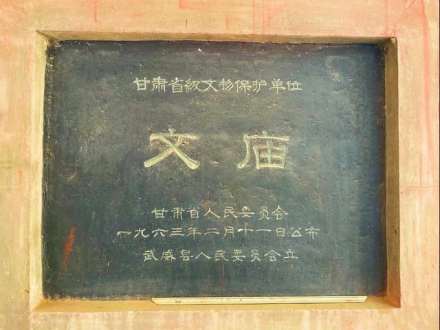 甘肃省级文物保护单位
文庙
甘肃省人民委员会
一九六三年二月十一日公布
武威县人民委员会立